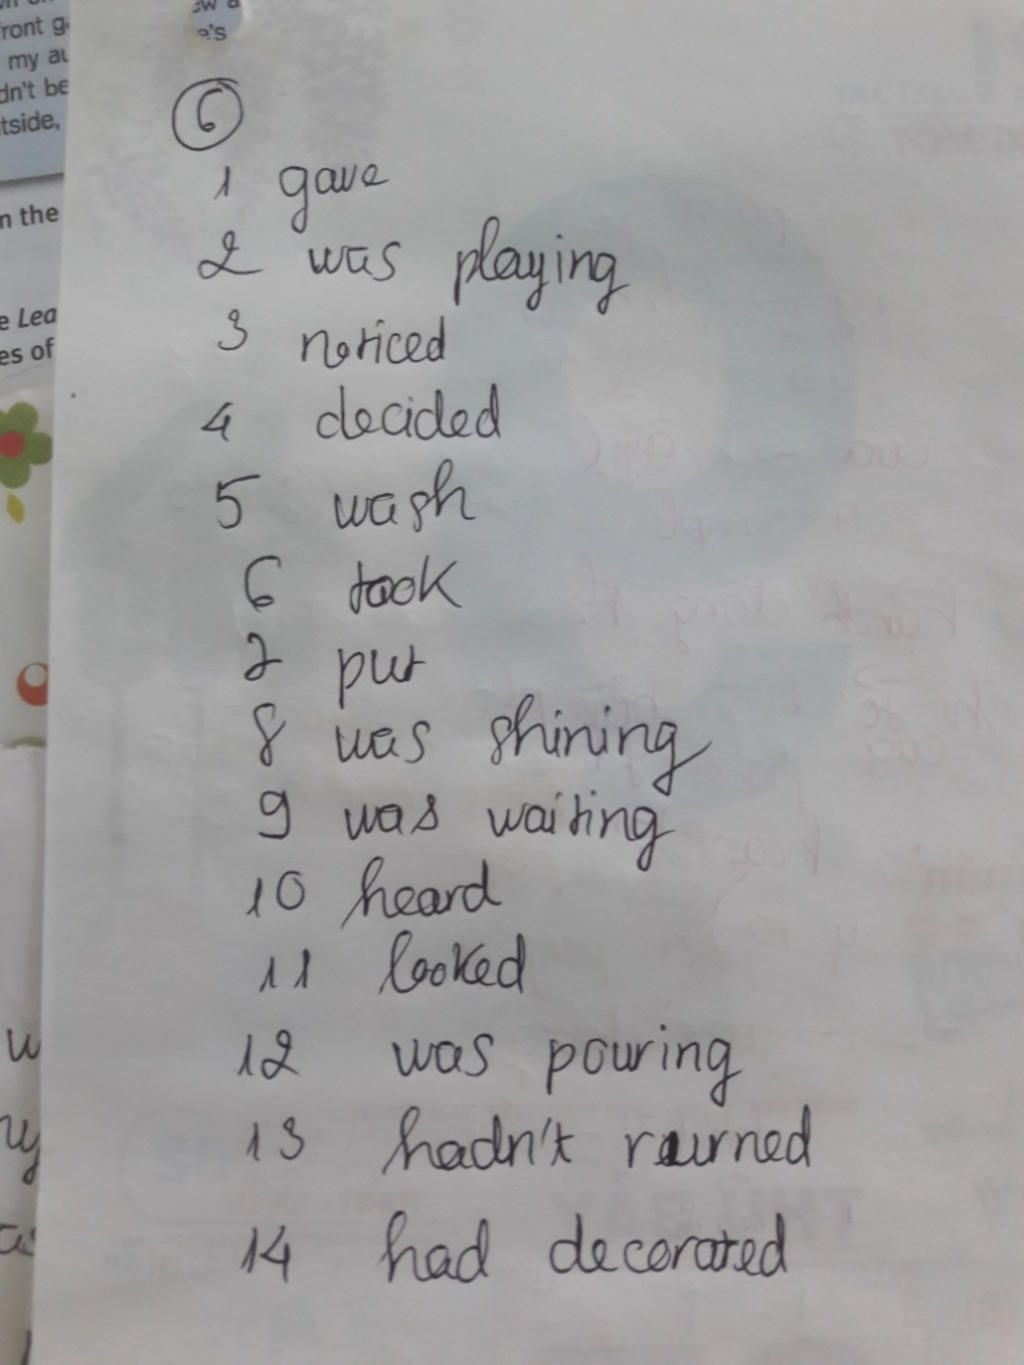 front g
my au
dn't be
tside,
n the
e Lea
es of
e's
6
1 gave
2 was playing
3 noticed
4 decided
5 wash
6 took
7 put
8 was shining
9 was waiting
10 heard
11 looked
12 was pouring
13 hadn't rurned
14 had decorated